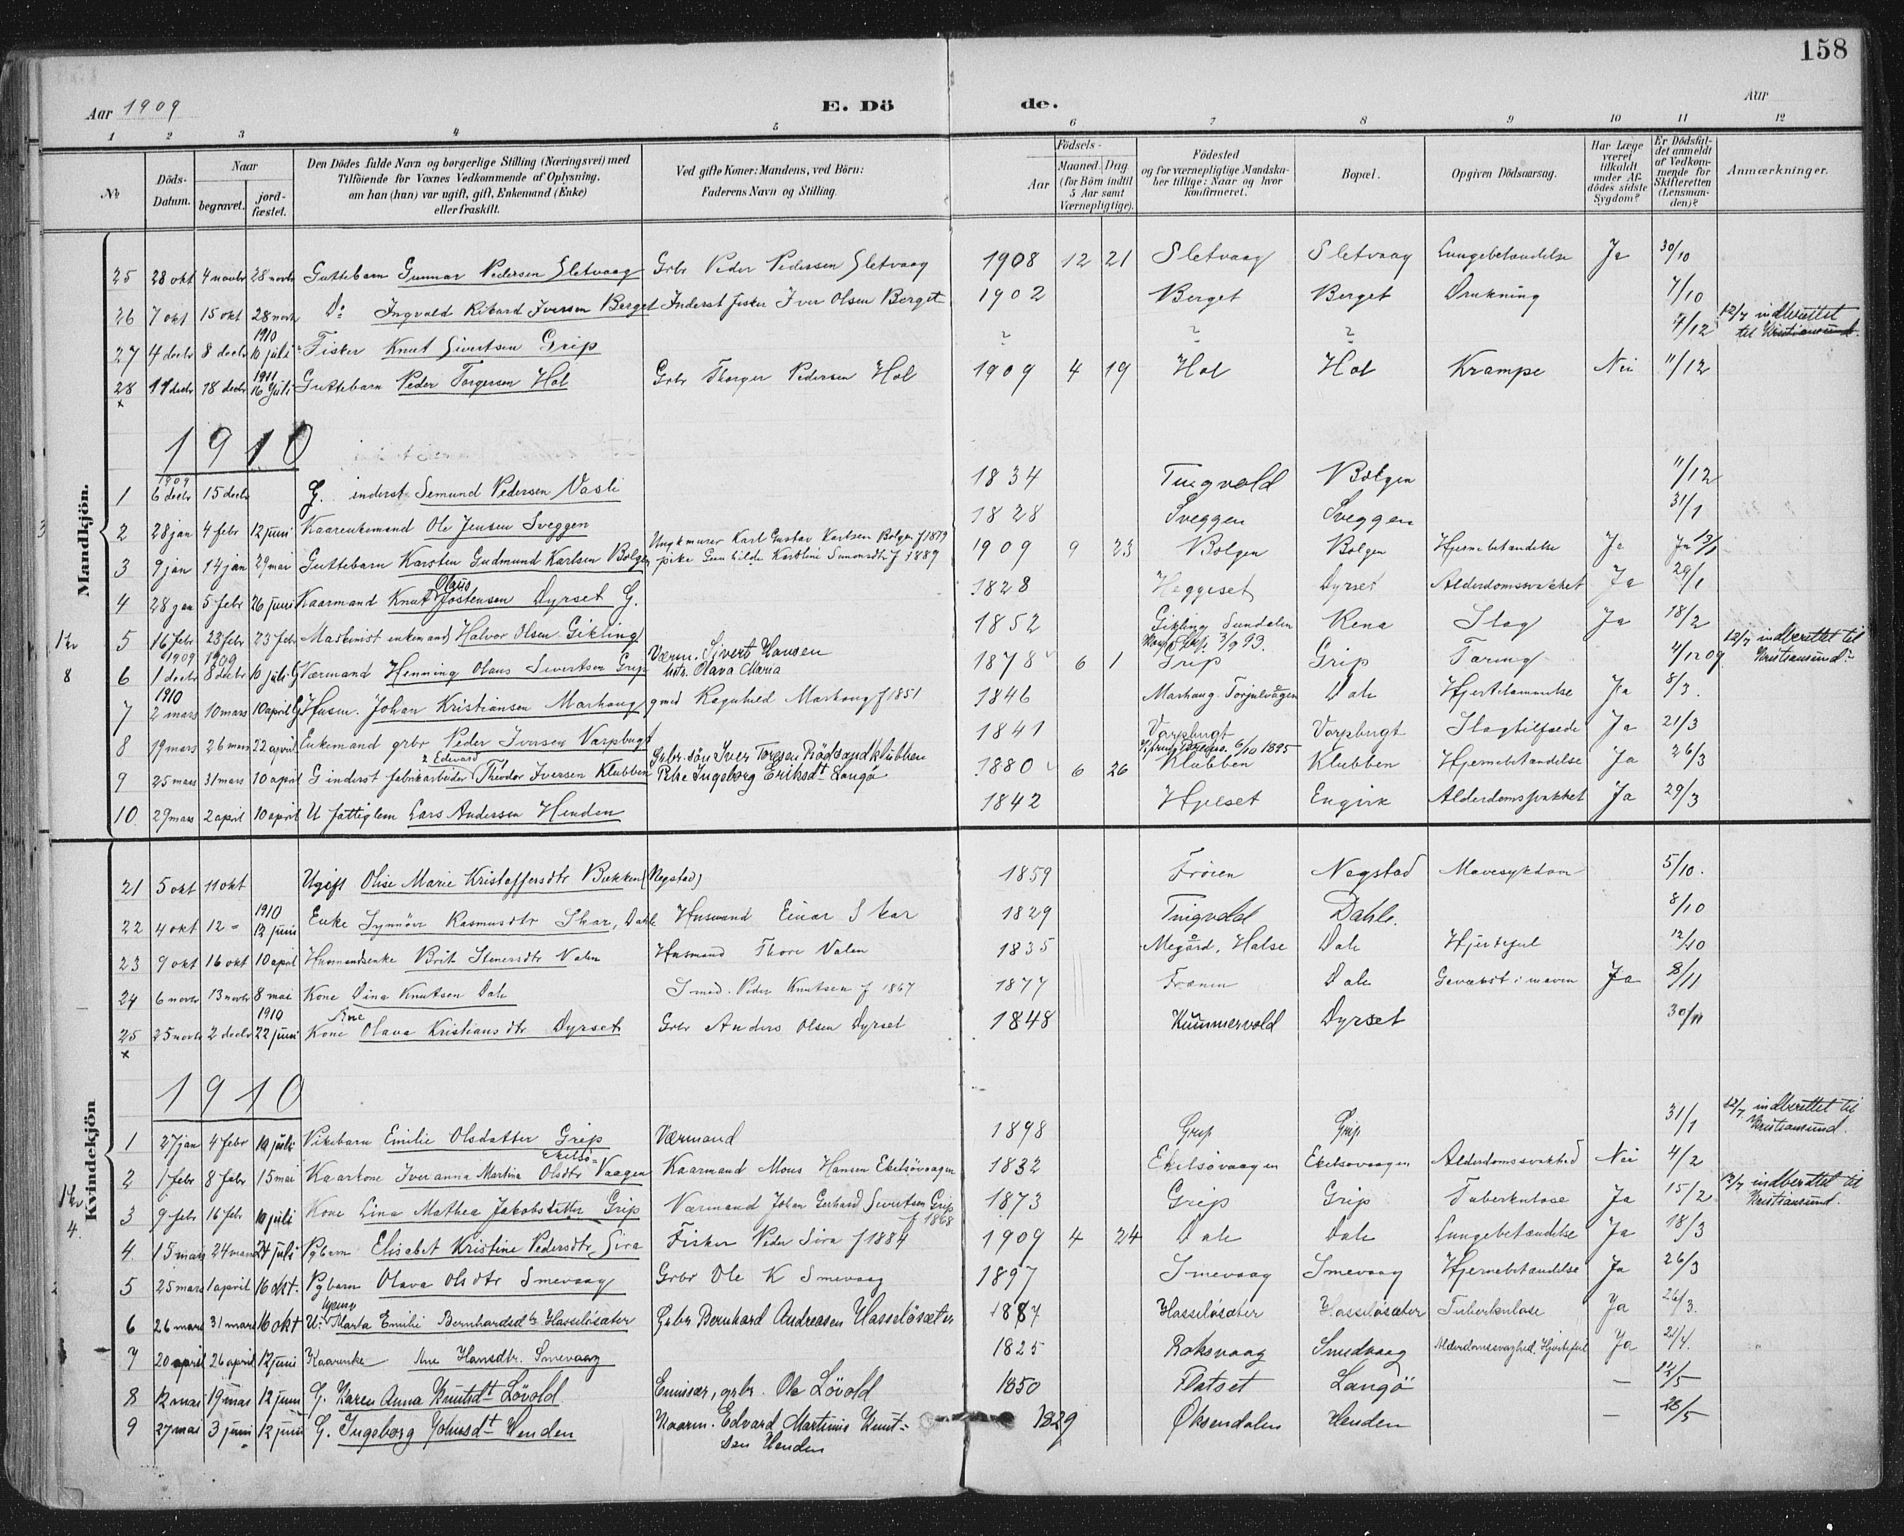 158
Aar 1909 E. Dö de. Aar
1 2 3 4 5 6 7 8 9 10 11 12
No
Döds-Datum.
Naar
begravet.
jord-fæstet.
Den Dödes fulde Navn og borgerlige Stilling (Næringsvei) med
Tilföiende for Voxnes Vedkommende af Oplysning,
om han (hun) var ugift, gift, Enkemand (Enke)
eller fraskilt.
Ved gifte Koner: Mandens, ved Börn:
Faderens Navn og Stilling.
Födsels-
Aar
Maaned. Dag
(for Börn indtil
5 Aar samt
Værnepligtige).
Födested
og for værnepligtige Mandska-
ber tillige: Naar og hvor
konfirmeret.
Bopæl.
Opgiven Dödsaarsag.
Har Læge
været
tilkaldt
under Af-
dödes sidste
Sygdom?
Er Dödsfal-
det anmeldt
af Vedkom-
mende for
Skifteretten
(Lensman-
den)?
Anmærkninger.
Mandkjön.
25 28 okt 4 novbr 28 novbr Guttebarn Gunnar Pedersen Sletvaag Grbr Peder Pedersen Sletvaag 1908 12 21 Sletvaag Sletvaag Lungebetændelse Ja 30/10
26 7 okt 15 okt 28 novb Do Ingvald Rikard Iversen Berget Inderst fisker Iver Olsen Berget 1902 Berget Berget Drukning 7/10
27 4 decbr 8 decbr 1910 10 juli Fisker Knut Sivertsen Grip ? ? ? 9/12 12/7 indberettet til Kristiansund.
28 11 decbr 18 decbr 1911 16 Juli Guttebarn Peder Torgersen Hol Grbr Thorger Pedersen Hol 1909 4 19 Hol Hol Krampe Nei 11/12
x
1910
1 1909 6 decbr 15 decbr G. inderst Semund Pedersen Vasli 1834 Tingvold Bolgen 11/12
2 28 jan 4 febr 12 juni Kaarenkemand Ole Jensen Sveggen 1828 Sveggen Sveggen 31/1
3 9 jan 14 jan 29 mai Guttebarn Karsten Gudmund Karlsen Bolgen Ungk murer Karl Gustav Karlsen Bolgen f 1879
pike Gunhilde Karoline Simonsdtr f 1889 1909 9 23 Bolgen Bolgen Hjernebetændelse Ja Ja 13/1
4 28 jan 5 febr 26 juni Kaarmand Knut Olaus Jostensen Dyrset G. 1828 Heggeset Dyrset Alderdomssvækket Ja 29/1
5 16 febr 23 febr 23 febr Maskinist enkemand Halvor Olsen Gikling 1852 Gikling Sundalen Rena Slag Ja 18/2
6 1909 1 decbr 1909 8 decbr 10 juli G Værmand Henning Olaus Sivertsen Grip Værm. Sivert Hansen
Olava Maria 1878 6 1 3/9 93. Grip Grip Tæring 4/12 09 12/7 indberettet til Kristiansund.
7 1910 2 mars 10 mars 10 april G Husm. Johan Kristiansen Marhaug gmed Ragnhild Marhaug f 1851 1846 Marhaug Torjulvågen Dale Hjertelammelse Ja 8/3.
8 19 mars 26 mars 22 april Enkemand grbr Peder Iversen Varpbugt 1841 Varpbugt Varpbugt Slagtilfælde Ja 21/3
9 25 mars 31 mars 10 april G inderst fabrikarbeider Edevard Theodor Iversen Klubben Grbr.sön Iver Torgsen Rödsandklubben
Pike Ingeborg Eriksdt Langö 1880 6 26 6/10 1895 Klubben Klubben Hjernebetændelse Ja 26/3
10. 29 mars 2 april 10 april U fattiglem Lars Andersen Henden 1842 Hjelset Engvik Alderdomssvækket Ja 29/3
Kvindekjön
21 5 okt 11 okt Ugift Olise Marie Kristoffersdtr Bækken (Negstad) 1859 Freien Negstad Mavesygdom 5/10.
22 4 okt 12 - 1910 12 juni Enke Synnöv Rasmusdtr Skar, Dahle Husmand Einar Skar 1829 Tingvold Dahle. 8/10
23 9 okt 16 okt 10 april Husmandsenke Brit Stenersdtr Valen Husmand Thore Valen 1835 Megård, Halse Dale Hjertefeil 12/10
24 6 novbr 13 novbr 8 mai Kone Dina Knutsen Dale Smed. Peder Knutsen f 1867 1877 Frönen Dale Gevækst i maven Ja 8/11
25 25 novbr 2 decbr 1910 22 juni Kone Ane Olava Kristiansdtr Dyrset Grbr Anders Olsen Dyrset 1848 Kummervold Dyrset 30/11
x
1910
1 27 jan 4 febr 10 juli Pikebarn Emilie Olsdatter Grip Værmand 1898 Grip Grip 31/1 12/7 indberettet til Kristiansund.
2 1 febr 8 febr 15 mai Kaarkone Iveranna Martina Olsdtr Ekelsö-Vaagen Kaarmand Mons Hansen Ekelsövaagen 1832 Ekelsövaagen Ekelsovaagen Alderdomssvakhed Nei 4/2
3 9 febr 16 febr 10 juli Kone Lina Mathea Jakobsdatter Grip Værmand Johan Gerhard Sivertsen Grip f 1868 1873 Grip Grip Tuberkulose Ja 15/2 12/7 indberettet til Kristiansund.
4. 15 mars 24 mars 24 juli Pgbarn Elisabet Kristine Pedersdtr Sira Fisker Peder Sira f 1884 1909 4 24 Dale Dale Lungebetændelse Ja 18/3
5 25 mars 1 april 16 okt. Pgbarn Olava Olsdtr Smevaag Grbr Ole K Smevaag 1897 Smevaag Smevaag Hjernebetændelse Ja 26/3
6 26 mars 31 mars 16 okt U. Marta Emilie Bernhardsdtr Hasselösæter Grbr Bernhard Andreassen Hasselösæter 1887 Hasselösæter Hasselösæter Tuberkulose Ja 26/3.
7 20 april 26 april 12 juni Kaarenke Ane Hansdtr. Smevaag 1825 Roksvaag Smedvaag Alderdomssvaghed, Hjertefeil Ja 21/4.
8 12 mai 19 mai 12 juni G. Karen Anna Knutsdt Lövold Emissær, grbr. Ole Lövold 1850 Flatset Langö — 14/5
9 27 mai 3 juni 12 juni G. Ingeborg Johnsdt Henden Kaarm. Edvard Martinus Knut-
sen Henden 1829 Öksendalen Henden — 28/5